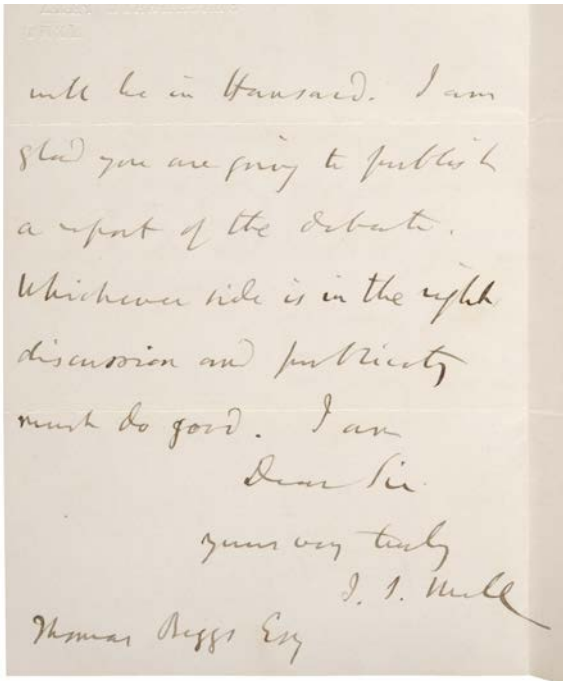 will be in Hansard. I am
glad you are going to publish
a report of the debate.
Whichever side is in the right
discussion and publicity
must do good. I am
Dear Sir
yours very truly
J. S. Mill
Thomas Beggs Esq